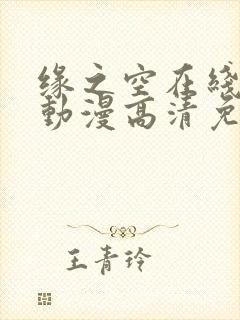 缘之空在綫
動漫高清免
王青玲